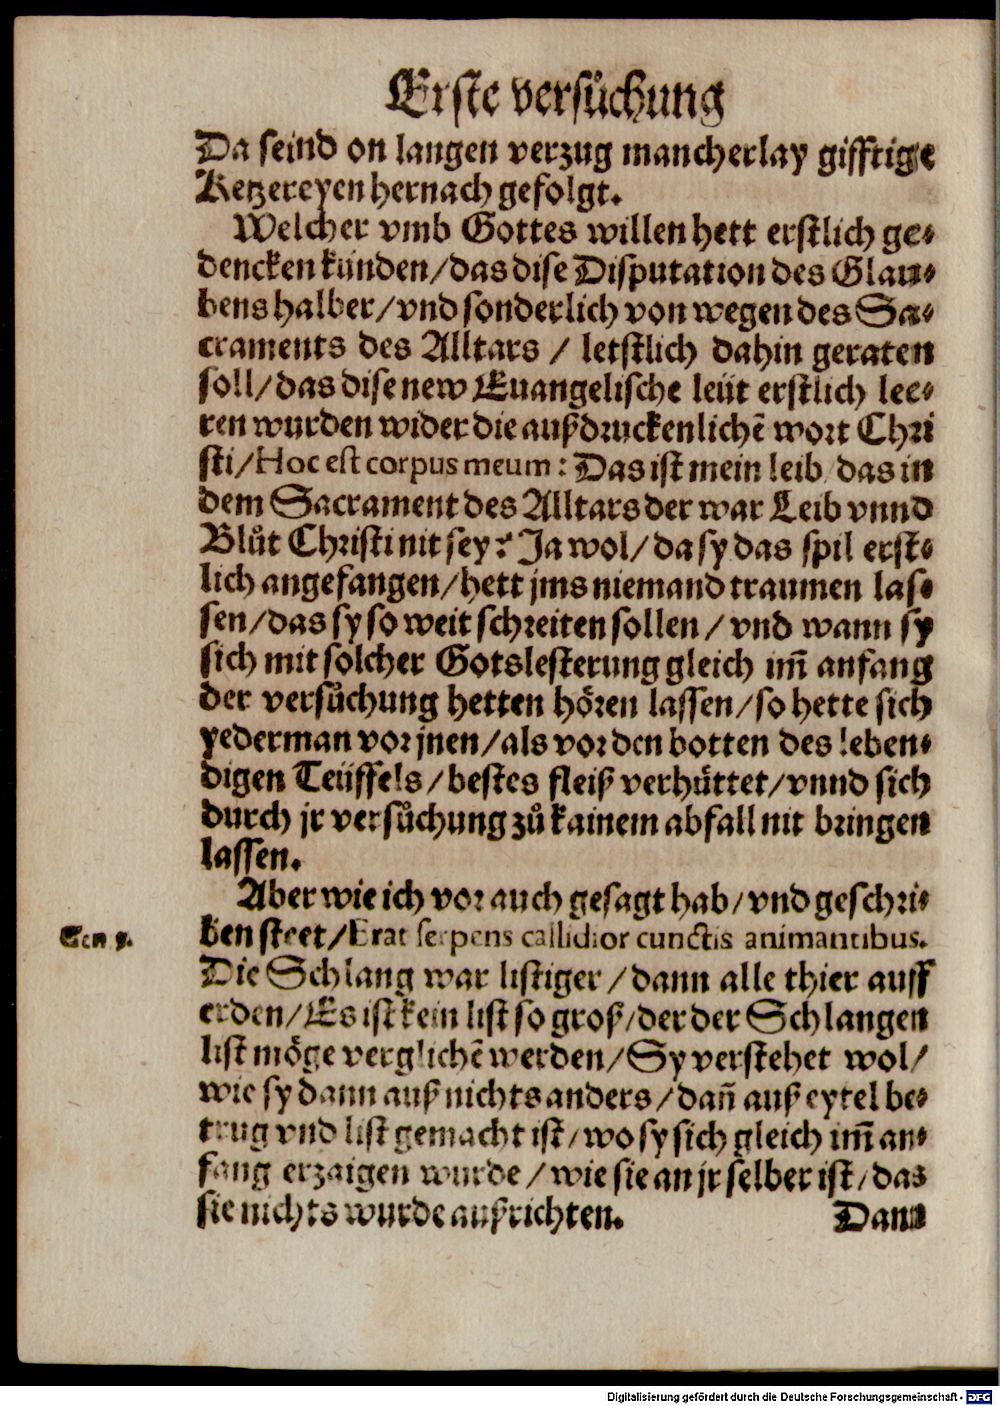 Erste versuͦchung
Da seind on langen verzug mancherlay gifftige
Ketzereyen hernach gefolgt.
Welcher vmb Gottes willen hett erstlich ge-
dencken kuͤnden/das dise Disputation des Glau-
bens halber/vnd sonderlich von wegen des Sa-
craments des Alltars / letstlich dahin geraten
soll/das dise new Euangelische leuͤt erstlich lee-
ren wurden wider die außdruckenlichẽ wort Chri
sti/Hoc est corpus meum: Das ist mein leib/das in
dem Sacrament des Alltars der war Leib vnnd
Bluͦt Christi nit sey? Ja wol/da sy das spil erst-
lich angefangen/hett jms niemand traumen las-
sen/das sy so weit schreiten sollen/vnd wann sy
sich mit solcher Gotslesterung gleich im̃ anfang
der versuͦchung hetten hoͤren lassen/so hette sich
yederman vor jnen/als vor den botten des leben-
digen Teuͤffels/bestes fleiß verhuͤttet/vnnd sich
durch jr versuͦchung zuͦ kainem abfall nit bringen
lassen.
Aber wie ich vor auch gesagt hab/vnd geschri-
Gen 3.
ben steet/Erat serpens callidior cunctis animantibus.
Die Schlang war listiger/dann alle thier auff
erden/Es ist kein list so groß/der der Schlangen
list moͤge verglichẽ werden/Sy verstehet wol/
wie sy dann auß nichts anders/dañ auß eytel be-
trug vnd list gemacht ist/wo sy sich gleich im̃ an-
fang erzaigen wurde/wie sie an jr selber ist/das
sie nichts wurde außrichten.
Dann
Digitalisierung gefördert durch die Deutsche Forschungsgemeinschaft - DFG